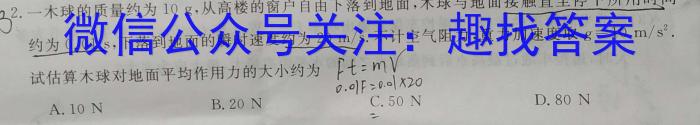 3
2.一木球的质量约为 10 g,从高楼的窗户自由下落到地面,木球与地面接触直至停下所用时间
微信公众号关注：趣找答案
约为 0. s,下落到地面的瞬时速度约为 m/s,不计空气阻 加速度 g m/s².
试估算木球对地面平均作用力的大小约为
Ft=mV
0.01F=0.01×20
A. 10 N B. 20 N C. 50 N D. 80 N